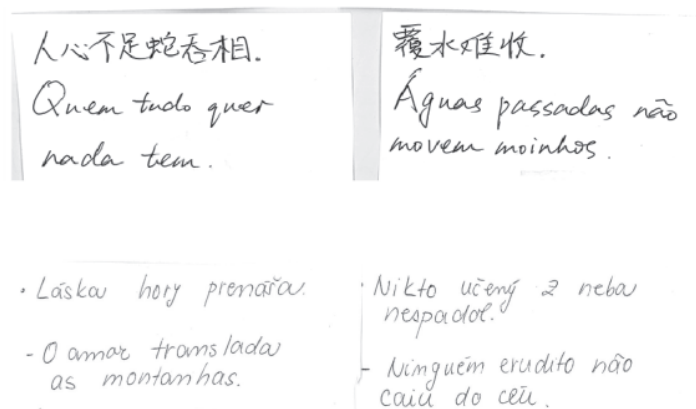 人心不足蛇吞相.
Quem tudo quer
nada tem.
覆水难收.
Águas passadas não
movem moinhos.
· Láska hory prenáša.
- O amar translada
as montanhas.
· Nikto učený z neba
nespadol.
- Ninguém erudito não
caiu do céu.